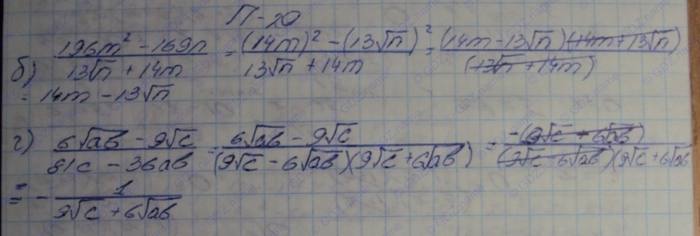 П-20
б) (196m² - 169n)/(13√n + 14m) = ((14m)² - (13√n)²)/(13√n + 14m) = ((14m - 13√n)(14m + 13√n))/(13√n + 14m)
= 14m - 13√n
г) (6√ab - 9√c)/(81c - 36ab) = (6√ab - 9√c)/((9√c - 6√ab)(9√c + 6√ab)) = (-(9√c - 6√ab))/((9√c - 6√ab)(9√c + 6√ab))
= - 1/(9√c + 6√ab)